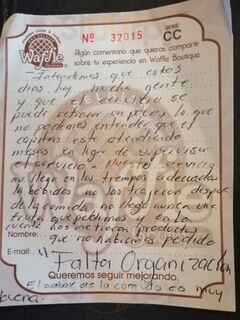 Waffle
Nº 32015
SERIE
CC
Algún comentario que quieras compartir
sobre tu experiencia en Waffle Boutique
Intendemos que estos
dias hay mucha gente
y que el servicio se
puede retrasar un poco, lo que
no podemos entender que el
capitan este atendiendo
mesas en lugar de supervisar
el servicio. Nuestro servicio
no llego en los tiempos adecuados
la bebidas no las trajeron despues
de la comida, no llego nunca una
fruta que pedimos y en la
cuenta nos metieron productos
Nombre: que no habiamos pedido
E-mail: "Falta Organización
Queremos seguir mejorando.
El sabor de la comida es muy
buena.